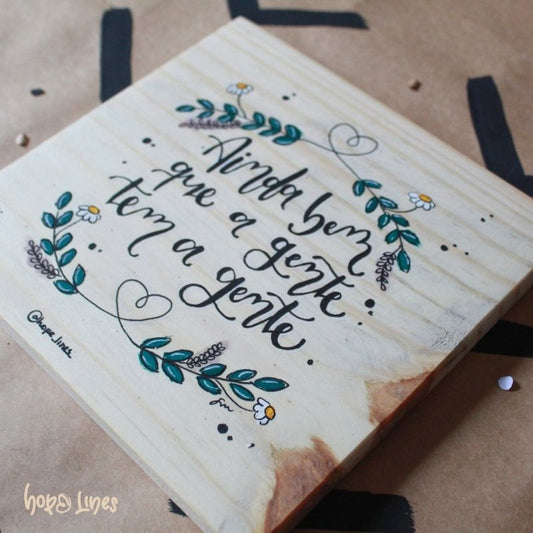 Ainda bem
que a gente
tem a gente
@hope_lines
hope Lines